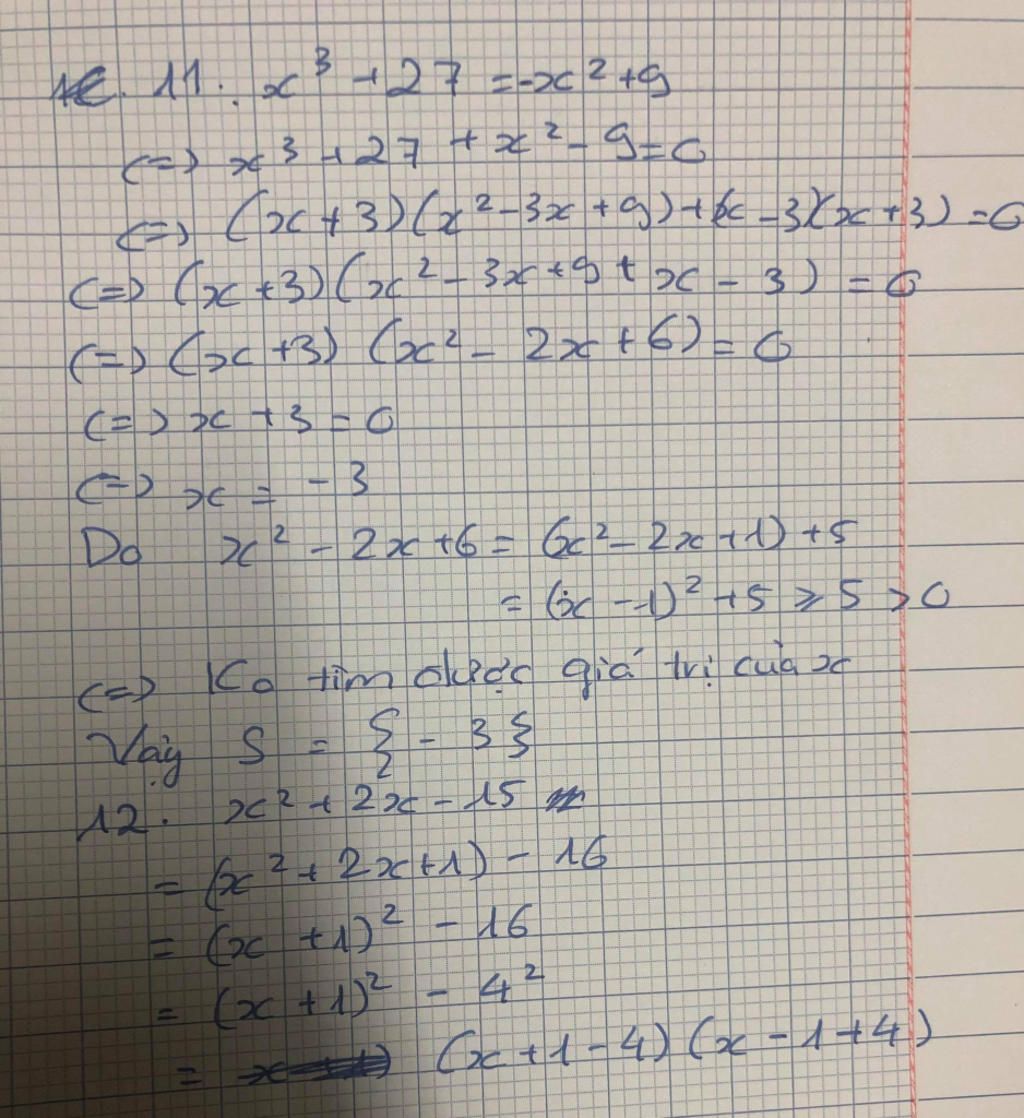 11. x³ + 27 = -x² + 9
<=> x³ + 27 + x² - 9 = 0
<=> (x + 3)(x² - 3x + 9) + (x - 3)(x + 3) = 0
<=> (x + 3)(x² - 3x + 9 + x - 3) = 0
<=> (x + 3) (x² - 2x + 6) = 0
<=> x + 3 = 0
<=> x = -3
Do x² - 2x + 6 = (x² - 2x + 1) + 5
= (x - 1)² + 5 ⩾ 5 > 0
<=> Ko tìm được giá trị của x
Vậy S = {-3}
12. x² + 2x - 15
= (x² + 2x + 1) - 16
= (x + 1)² - 16
= (x + 1)² - 4²
= (x + 1 - 4) (x - 1 + 4)